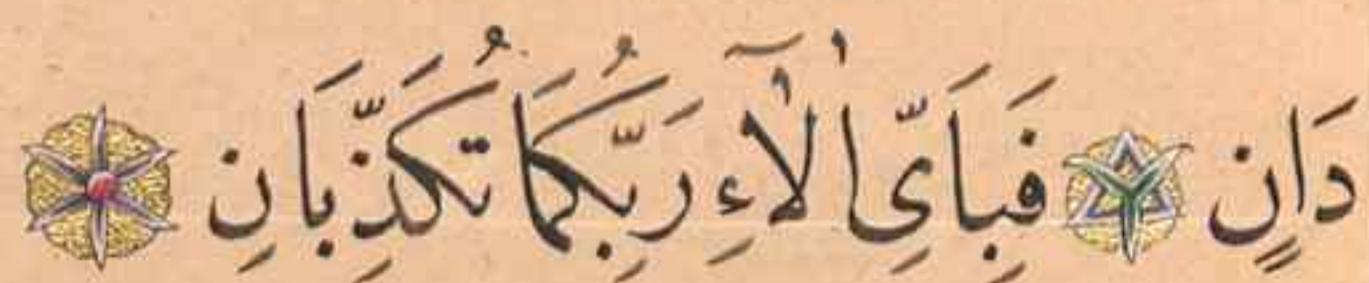 دَانٍ فَبِاَيِّ اٰلَٓاءِ رَبِّكُمَا تُكَذِّبَانِ